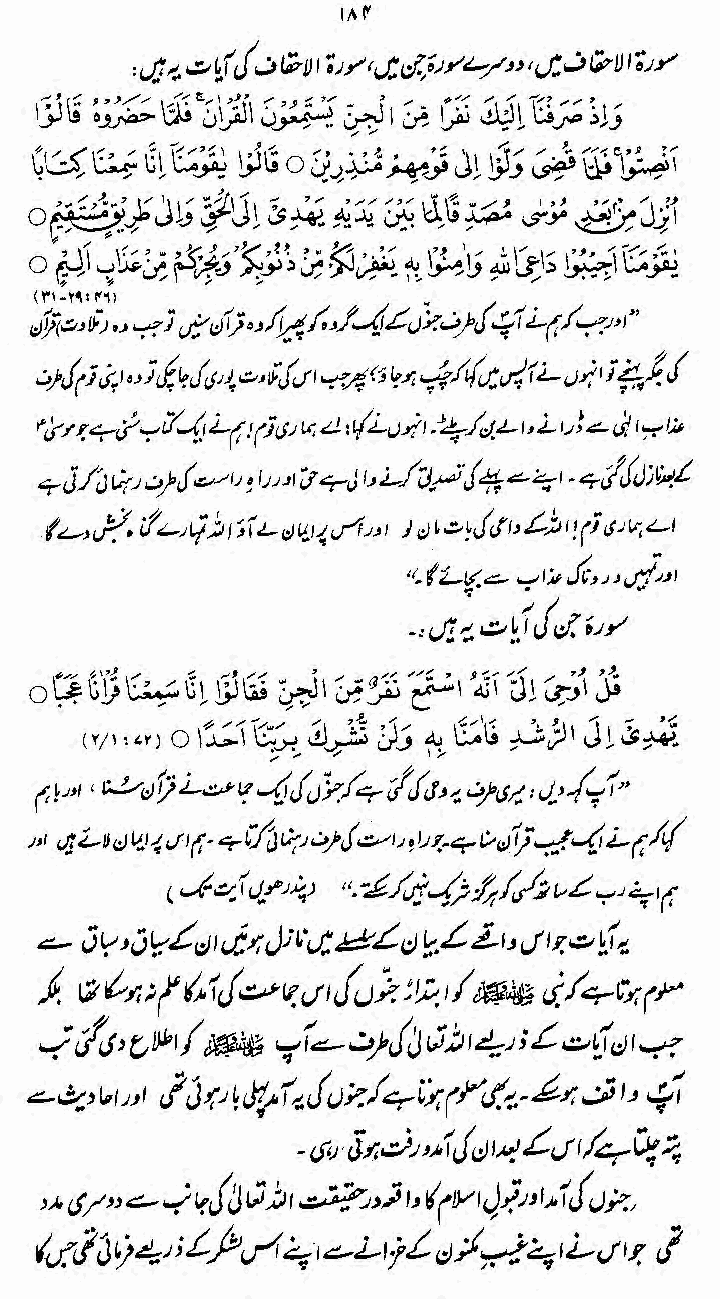 ۱۸۴
سورۃ الاحقاف میں، دوسرے سورۂ جن میں، سورۃ الاحقاف کی آیات یہ ہیں:
وَإِذْ صَرَفْنَآ إِلَيْكَ نَفَرًا مِّنَ الْجِنِّ يَسْتَمِعُوْنَ الْقُرْاٰنَ ۚ فَلَمَّا حَضَرُوْهُ قَالُوْٓا
اَنْصِتُوْا ۚ فَلَمَّا قُضِىَ وَلَّوْا اِلٰى قَوْمِهِمْ مُّنْذِرِيْنَ ○ قَالُوْا يٰقَوْمَنَآ اِنَّا سَمِعْنَا كِتٰبًا
اُنْزِلَ مِنْۢ بَعْدِ مُوْسٰى مُصَدِّقًا لِّمَا بَيْنَ يَدَيْهِ يَهْدِىْٓ اِلَى الْحَقِّ وَاِلٰى طَرِيْقٍ مُّسْتَقِيْمٍ ○
يٰقَوْمَنَآ اَجِيْبُوْا دَاعِىَ اللهِ وَاٰمِنُوْا بِهٖ يَغْفِرْ لَكُمْ مِّنْ ذُنُوْبِكُمْ وَيُجِرْكُمْ مِّنْ عَذَابٍ اَلِيْمٍ ○
(۴۶ : ۲۹-۳۱)
”اور جب کہ ہم نے آپؐ کی طرف جنّوں کے ایک گروہ کو پھیرا کہ وہ قرآن سنیں تو جب وہ (تلاوت) قرآن
کی جگہ پہنچے تو انہوں نے آپس میں کہا کہ چُپ ہو جاؤ؛ پھر جب اس کی تلاوت پوری کی جاچکی تو وہ اپنی قوم کی طرف
عذابِ الٰہی سے ڈرانے والے بن کر پلٹے۔ انہوں نے کہا: اے ہماری قوم! ہم نے ایک کتاب سُنی ہے جو موسیٰؑ
کے بعد نازل کی گئی ہے۔ اپنے سے پہلے کی تصدیق کرنے والی ہے حق اور راہِ راست کی طرف رہنمائی کرتی ہے
اے ہماری قوم! اللہ کے داعی کی بات مان لو اور اس پر ایمان لے آؤ اللہ تمہارے گناہ بخش دے گا
اور تمہیں دردناک عذاب سے بچائے گا۔“
سورۂ جن کی آیات یہ ہیں:۔
قُلْ اُوْحِىَ اِلَىَّ اَنَّهُ اسْتَمَعَ نَفَرٌ مِّنَ الْجِنِّ فَقَالُوْٓا اِنَّا سَمِعْنَا قُرْاٰنًا عَجَبًا ○
يَّهْدِىْٓ اِلَى الرُّشْدِ فَاٰمَنَّا بِهٖ وَلَنْ نُّشْرِكَ بِرَبِّنَآ اَحَدًا ○ (۷۲ : ۱/۲)
”آپ کہہ دیں: میری طرف یہ وحی کی گئی ہے کہ جنّوں کی ایک جماعت نے قرآن سُنا، اور باہم
کہا کہ ہم نے ایک عجیب قرآن سنا ہے۔ جو راہِ راست کی طرف رہنمائی کرتا ہے۔ ہم اس پر ایمان لائے ہیں اور
ہم اپنے رب کے ساتھ کسی کو ہرگز شریک نہیں کرسکتے۔“ (پندرھویں آیت تک)
یہ آیات جو اس واقعے کے بیان کے سلسلے میں نازل ہوئیں ان کے سیاق و سباق سے
معلوم ہوتا ہے کہ نبی ﷺ کو ابتداءً جنّوں کی اس جماعت کی آمد کا علم نہ ہوسکا تھا بلکہ
جب ان آیات کے ذریعے اللہ تعالیٰ کی طرف سے آپ ﷺ کو اطلاع دی گئی تب
آپؐ واقف ہوسکے۔ یہ بھی معلوم ہوتا ہے کہ جنوں کی یہ آمد پہلی بار ہوئی تھی اور احادیث سے
پتہ چلتا ہے کہ اس کے بعد ان کی آمد و رفت ہوتی رہی۔
جنوں کی آمد اور قبولِ اسلام کا واقعہ درحقیقت اللہ تعالیٰ کی جانب سے دوسری مدد
تھی جو اس نے اپنے غیبِ مکنون کے خزانے سے اپنے اس لشکر کے ذریعے فرمائی تھی جس کا